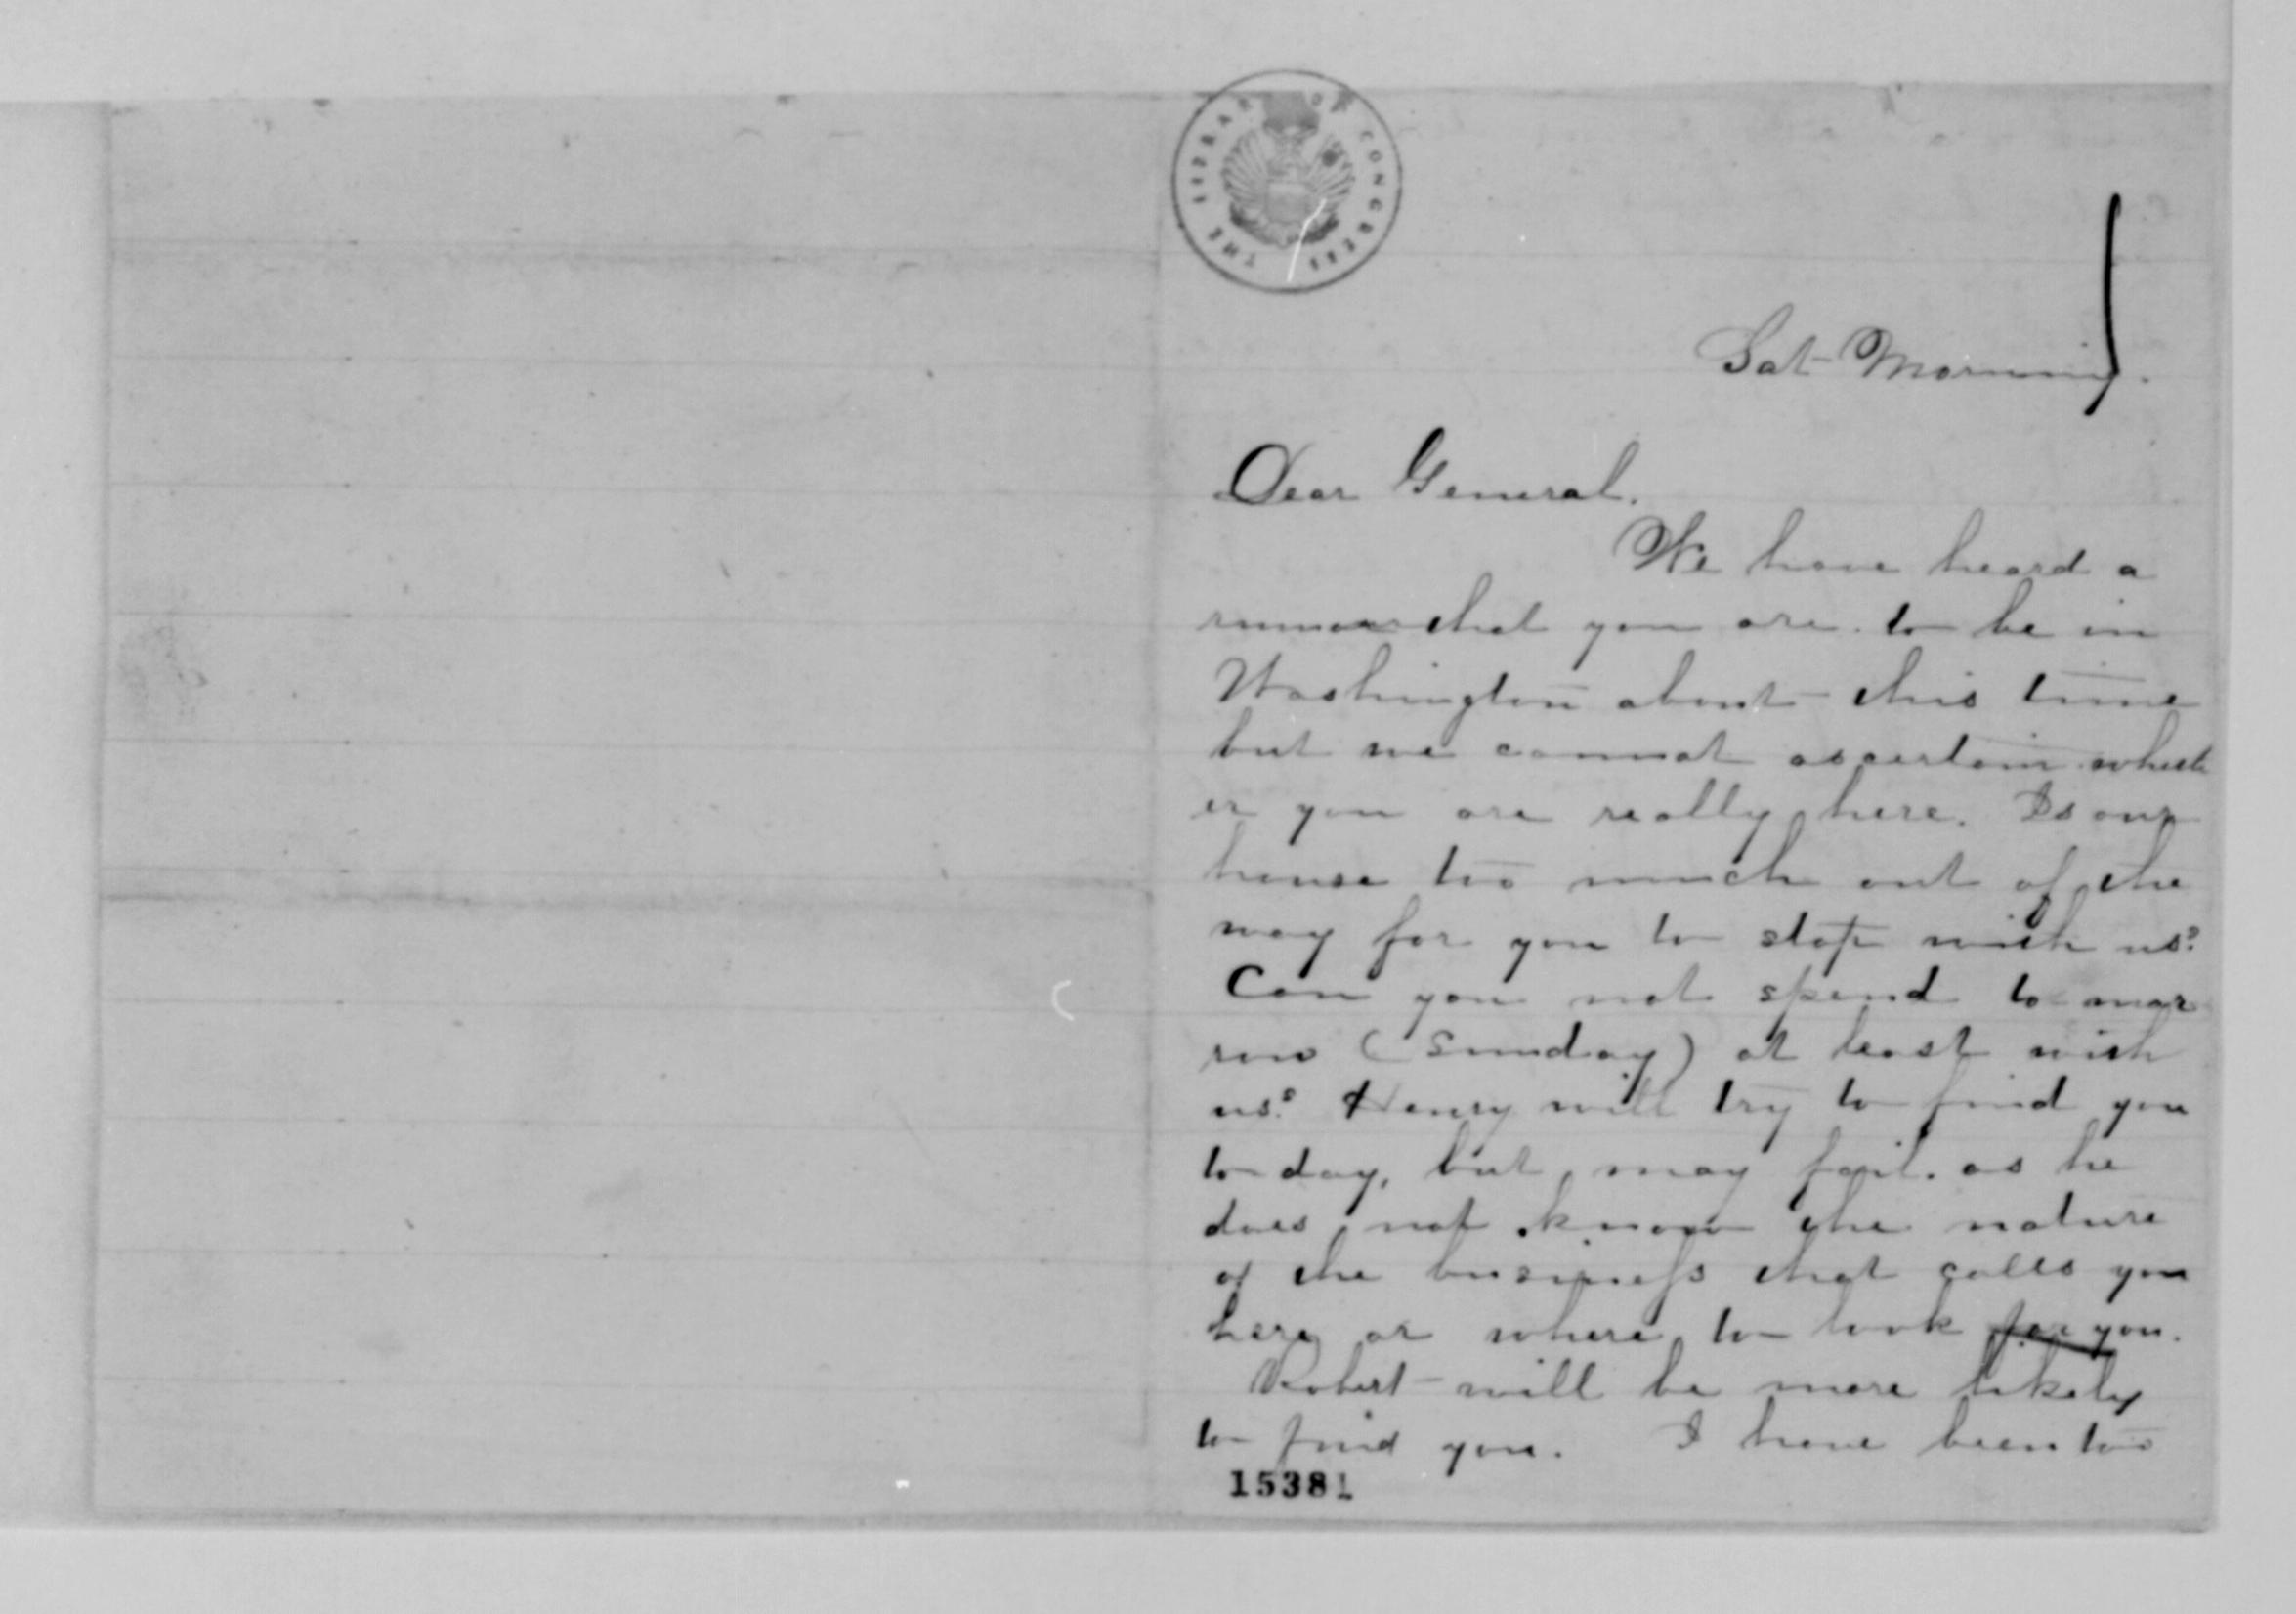 THE LIBRARY OF CONGRESS
Sat Morning.
Dear General.
We have heard a
rumor that you are to be in
Washington about this time
but we cannot ascertain wheth
er you are really here. Is our
house too much out of the
way for you to stop with us?
Can you not spend to mor
row (Sunday) at least with
us? Henry will try to find you
to day, but may fail. as he
does not know the nature
of the business that calls you
here or where to look for you.
Robert will be more likely
to find you. I have been too
15381